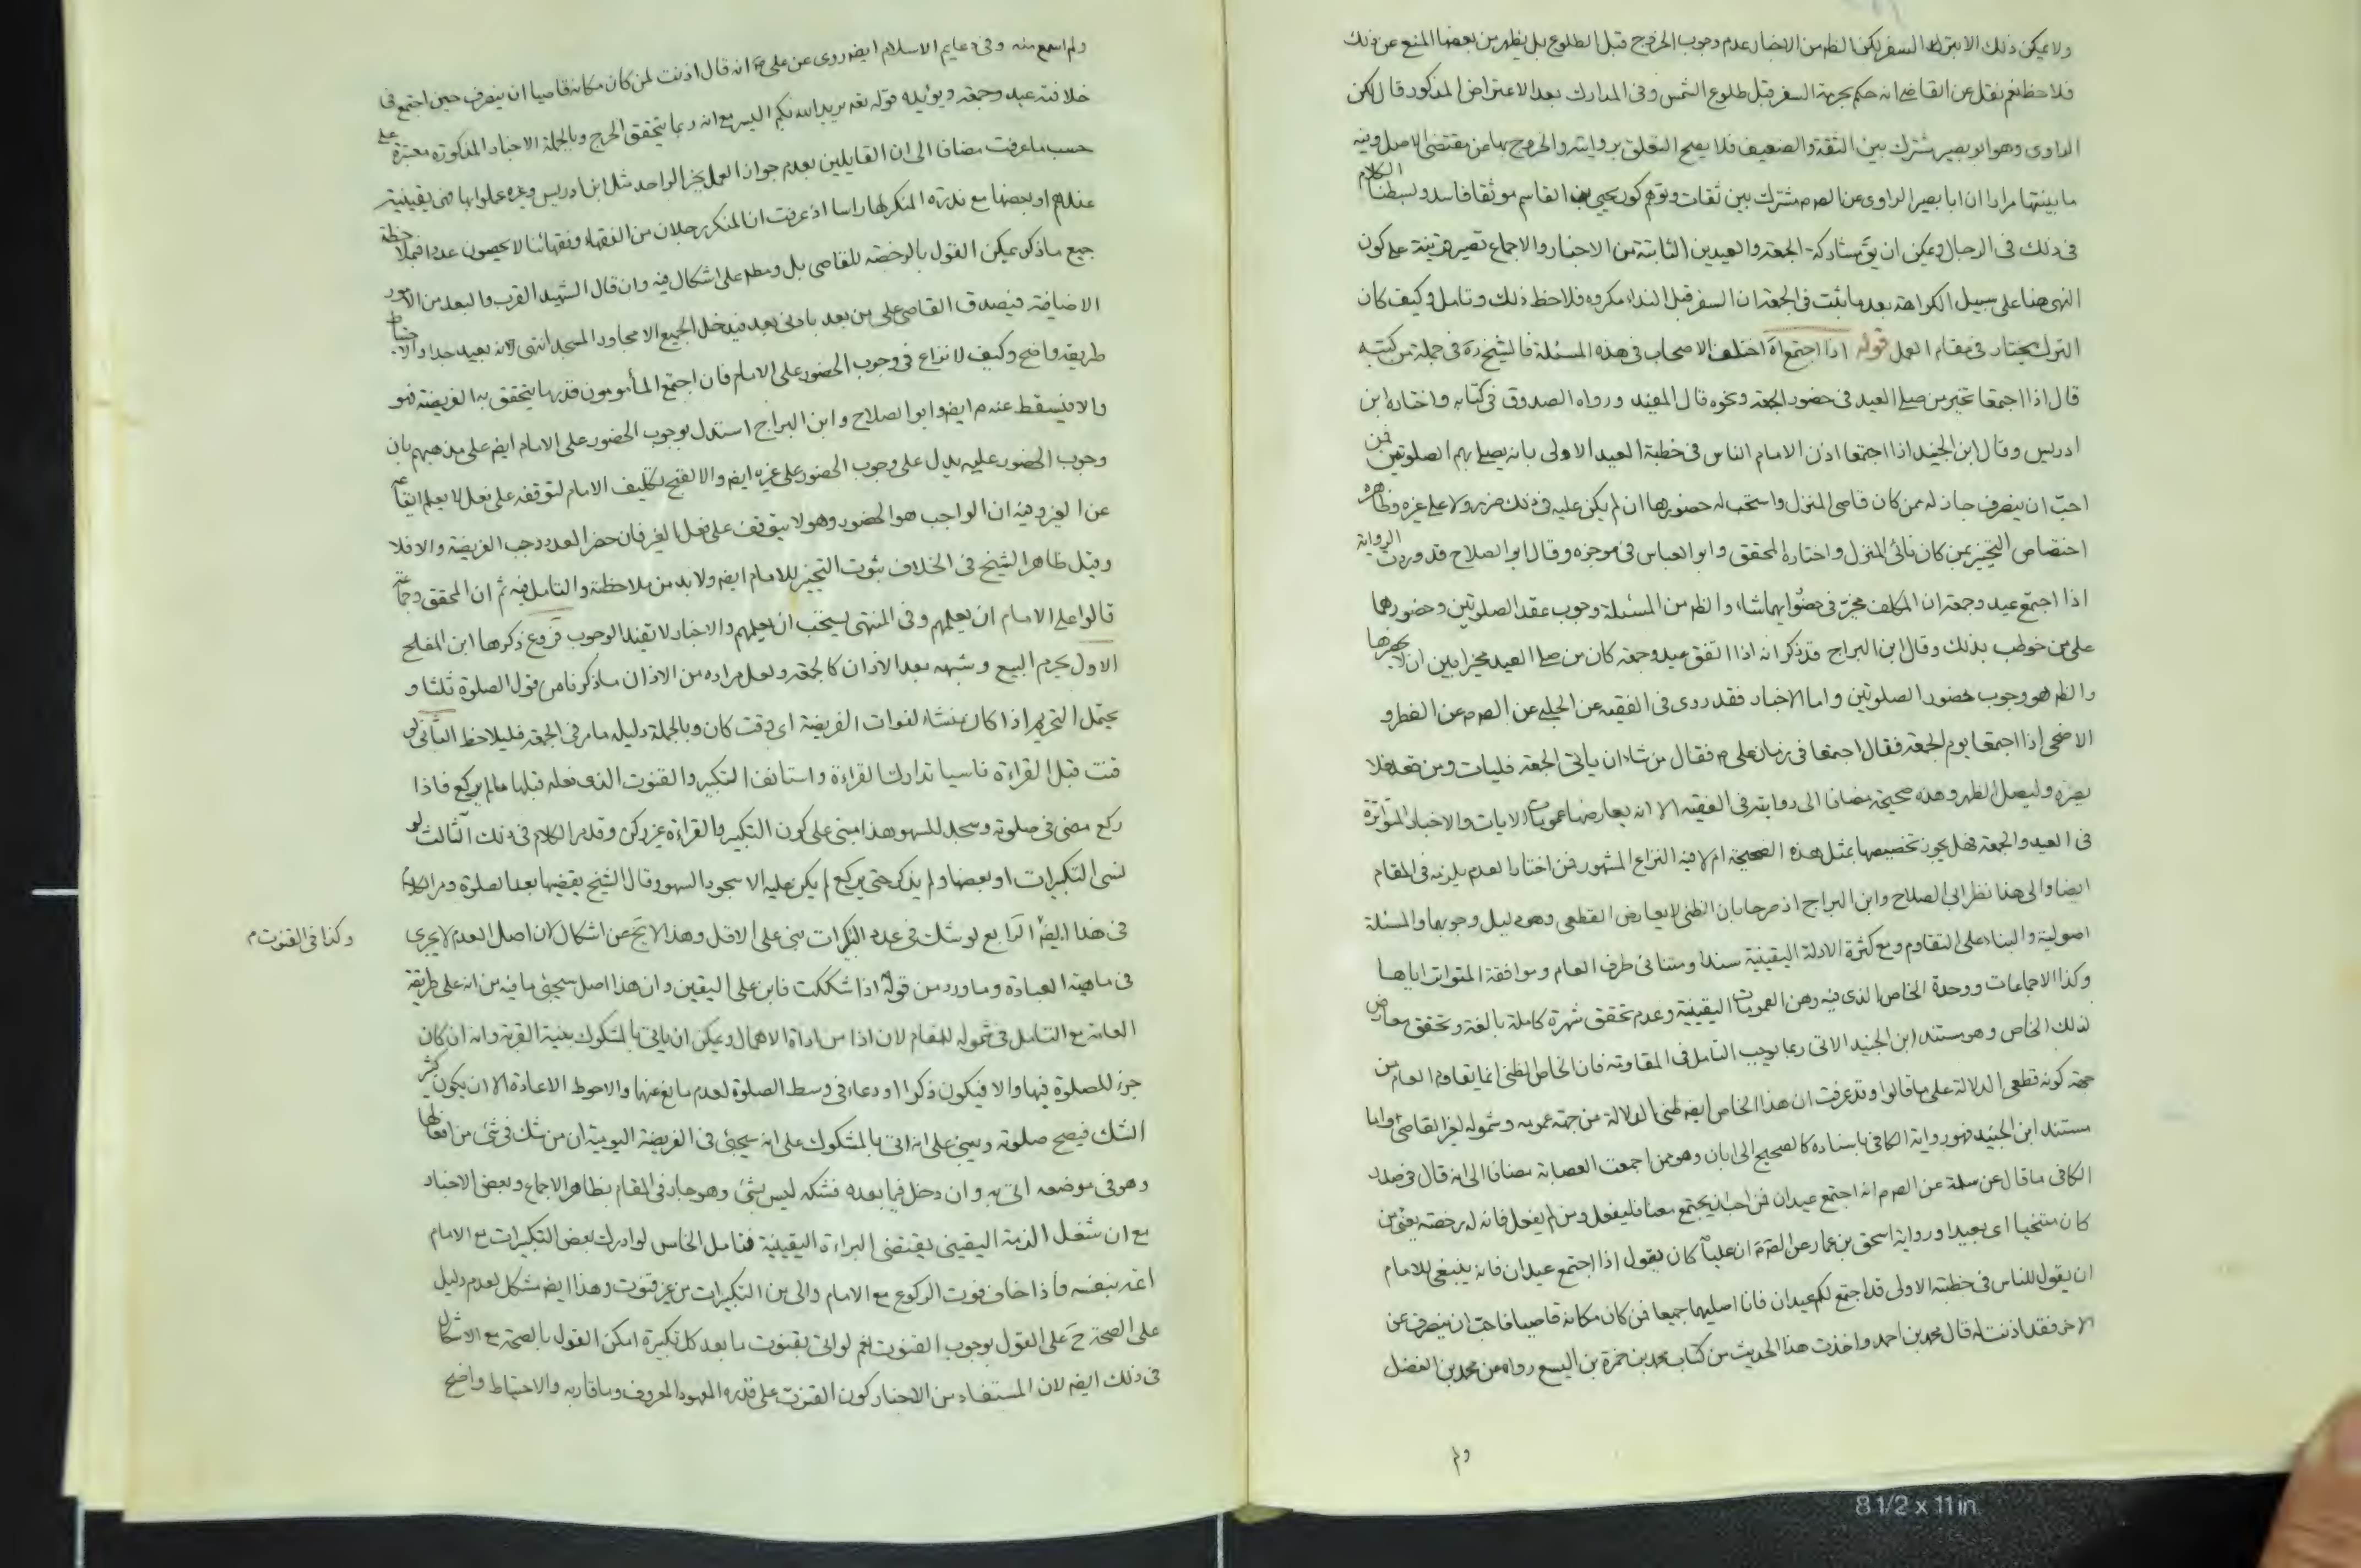 ولا يمكن ذلك الا بترك السفر لكن الظم من الاخبار عدم وجوب الخروج قبل الطلوع بل يظهر من بعضها المنع عن ذلك
فلاحظ نعم نقل عن القاضى انه حكم بحرمة السفر قبل طلوع الشمس وفى المدارك بعد الاعتراض المذكور قال لكن
الراوى وهو ابو بصير مشترك بين الثقة والضعيف فلا يصح التعلق بروايته والخروج بها عن مقتضى الاصل وفيه
ما بينتها مرارا ان ابا بصير الراوى عن الصم مشترك بين ثقات وتوهم كون يحيى بن القاسم موثقا فاسد وبسطنا الكلام
فى ذلك فى الرجال ويمكن ان يق مشاركة الجمعة والعيدين الثابتة من الاخبار والاجماع تصير قرينة على كون
النهى هنا على سبيل الكراهة بعد ما ثبت فى الجمعة ان السفر قبل النداء مكروه فلاحظ ذلك وتامل وكيف كان
الترك يختار فى مقام العمل قوله اذا اجتمع آه اختلف الاصحاب فى هذه المسئلة فالشيخ ره فى جملة من كتبه
قال اذا اجتمعا تخير من صلى العيد فى حضور الجمعة ونحوه قال المفيد ورواه الصدوق فى كتابه واختاره ابن
ادريس وقال ابن الجنيد اذا اجتمعا اذن الامام الناس فى خطبة العيد الاولى بانه يصلى بهم الصلوتين فمن
احب ان ينصرف جاز له ممن كان قاصى المنزل واستحب له حضورها ان لم يكن عليه فى ذلك ضرر ولا على غيره وظاهره
اختصاص التخيير بمن كان نائى المنزل واختاره المحقق وابو العباس فى موجزه وقال ابو الصلاح قد وردت الرواية
اذا اجتمع عيد وجمعة ان المكلف مخير فى حضور ايهما شاء والظم من المسئلة وجوب عقد الصلوتين وحضورهما
على من خوطب بذلك وقال ابن البراج قد ذكر انه اذا اتفق عيد وجمعة كان من صلى العيد مخيرا بين ان لا يحضرها
والظم هو وجوب حضور الصلوتين واما الاخبار فقد روى فى الفقيه عن الحلبى عن الصم عن الفطر و
الاضحى اذا اجتمعا يوم الجمعة فقال اجتمعا فى زمان على م فقال من شاء ان ياتى الجمعة فليات ومن قعد فلا
يضره وليصل الظهر وهذه صحيحة مضافا الى روايته فى الفقيه الا انه يعارضها عمومات الايات والاخبار المتواترة
فى العيد والجمعة فهل يجوز تخصيصها بمثل هذه الصحيحة ام لا فيه النزاع المشهور فمن اختار العدم يلزمه فى المقام
ايضا والى هنا نظر ابى الصلاح وابن البراج اذ صرحا بان الظنى لا يعارض القطعى وهو دليل وجوبها والمسئلة
اصولية والبناء على التقاوم ومع كثرة الادلة اليقينية سندا ومتنا فى طرف العام وموافقة المتواتر اياها
وكذا الاجماعات ووحدة الخاص الذى فيه وهن العمومات اليقينية وعدم تحقق شهرة كاملة بالغة وتحقق معارض
لذلك الخاص وهو مستند ابن الجنيد الاتى ربما يوجب التامل فى المقاومة فان الخاص الظنى انما يقاوم العام من
جهة كونه قطعى الدلالة على ما قالوا وقد عرفت ان هذا الخاص ايضم ظنى الدلالة من جهة عمومه وشموله لغير القاصى واما
مستند ابن الجنيد فهو رواية الكافى باسناده كالصحيح الى ابان وهو ممن اجمعت العصابة مضافا الى انه قال فى صدر
الكافى ما قال عن سلمة عن الصم م انه اجتمع عيدان فمن احب ان يجتمع معنا فليفعل ومن لم يفعل فانه له رخصة يعنى من
كان متنحيا اى بعيدا ورواية اسحق بن عمار عن الصم ان عليا كان يقول اذا اجتمع عيدان فانه ينبغى للامام
ان يقول للناس فى خطبته الاولى قد اجتمع لكم عيدان فانا اصليهما جميعا فمن كان مكانه قاصيا فاحب ان ينصرف عن
الاخر فقد اذنت له قال محمد بن احمد واخذت هذا الحديث من كتاب محمد بن حمزة بن اليسع رواه عن محمد بن الفضل
ولم
ولم اسمع منه وفى دعايم الاسلام ايضم روى عن على م انه قال اذنت لمن كان مكانه قاصيا ان ينصرف حين اجتمع فى
خلافته عيد وجمعة ويؤيده قوله تعه يريد الله بكم اليسر مع انه ربما يتحقق الحرج وبالجملة الاخبار المذكورة معتبرة على
حسب ما عرفت مضافا الى ان القايلين بعدم جواز العمل بخبر الواحد مثل ابن ادريس وغيره عملوا بها فهى يقينية
عندهم او بعضها مع ندرة المنكر لها راسا اذ عرفت ان المنكر رجلان من الفقهاء وفقهائنا لا يحصون عددا فبملاحظة
جميع ما ذكر يمكن القول بالرخصة للقاصى بل ومطم على اشكال فيه وان قال الشهيد القرب والبعد من الامور
الاضافية فيصدق القاصى على من بعد بادنى بعد فيدخل الجميع الا مجاور المسجد انتهى لانه بعيد جدا والاحتياط
طريقه واضح وكيف لا نزاع فى وجوب الحضور على الامام فان اجتمع المأمومون قدر ما يتحقق به الفريضة فهو
والا فيسقط عنه م ايضم وابو الصلاح وابن البراج استدل بوجوب الحضور على الامام ايضم على مذهبهم بان
وجوب الحضور عليه يدل على وجوب الحضور على غيره ايضم والا لقبح تكليف الامام لتوقفه على فعل لا يعلم ايقاعه
عن الغير وفيه ان الواجب هو الحضور وهو لا يتوقف على فعل الغير فان حضر العدد وجب الفريضة والا فلا
وقيل ظاهر الشيخ فى الخلاف ثبوت التخيير للامام ايضم ولا بد من ملاحظة والتامل فيه ثم ان المحقق وجماعة
قالوا على الامام ان يعلمهم وفى المنتهى يستحب ان يعلمهم والاخبار لا تفيد الوجوب فروع ذكرها ابن المفلح
الاول يحرم البيع وشبهه بعد الاذان كالجمعة ولعل مراده من الاذان ما ذكرنا من قول الصلوة ثلثا و
يحتمل التحريم اذا كان منشاء لفوات الفريضة اى وقت كان وبالجملة دليله ما مر فى الجمعة فليلاحظ الثانى لو
قنت قبل القراءة ناسيا تدارك القراءة واستانف التكبير والقنوت الذى فعله قبلها ما لم يركع فاذا
ركع مضى فى صلوته وسجد للسهو وهذا مبنى على كون التكبير والقراءة غير ركن وقد مر الكلام فى ذلك الثالث لو
نسى التكبيرات او بعضها ولم يذكر حتى يركع لم يكن عليه الا سجود السهو وقال الشيخ يقضيها بعد الصلوة ومر الكلام
فى هذا ايضم الرابع لو شك فى عدد التكبيرات بنى على الاقل وهذا لا يخ عن اشكال لان اصل العدم لا يجرى
وكذا فى القنوت م
فى ماهية العبادة وما ورد من قوله اذا شككت فابن على اليقين وان هذا اصل سيجئ ما فيه من انه على طريقة
العامة مع التامل فى شموله للمقام لان اذا من اداة الاهمال ويمكن ان ياتى بالمشكوك بنية القربة وانه ان كان
جزء للصلوة فيها والا فيكون ذكرا او دعاء فى وسط الصلوة لعدم مانع عنها والاحوط الاعادة الا ان يكون كثير
الشك فيصح صلوته ويبنى على انه اتى بالمشكوك على انه سيجئ فى الفريضة اليومية ان من شك فى شئ من افعالها
وهو فى موضعه اتى به وان دخل فيما بعده فشكه ليس بشئ وهو جار فى المقام بظاهر الاجماع وبعض الاخبار
مع ان شغل الذمة اليقينى يقتضى البراءة اليقينية فتامل الخامس لو ادرك بعض التكبيرات مع الامام
اتم بنفسه فاذا خاف فوت الركوع مع الامام والى بين التكبيرات من غير قنوت وهذا ايضم مشكل لعدم دليل
على الصحة ح على القول بوجوب القنوت نعم لو اتى بقنوت ما بعد كل تكبيرة امكن القول بالصحة مع الاشكال
فى ذلك ايضم لان المستفاد من الاخبار كون القنوت على قدره المعهود المعروف وما قاربه والاحتياط واضح